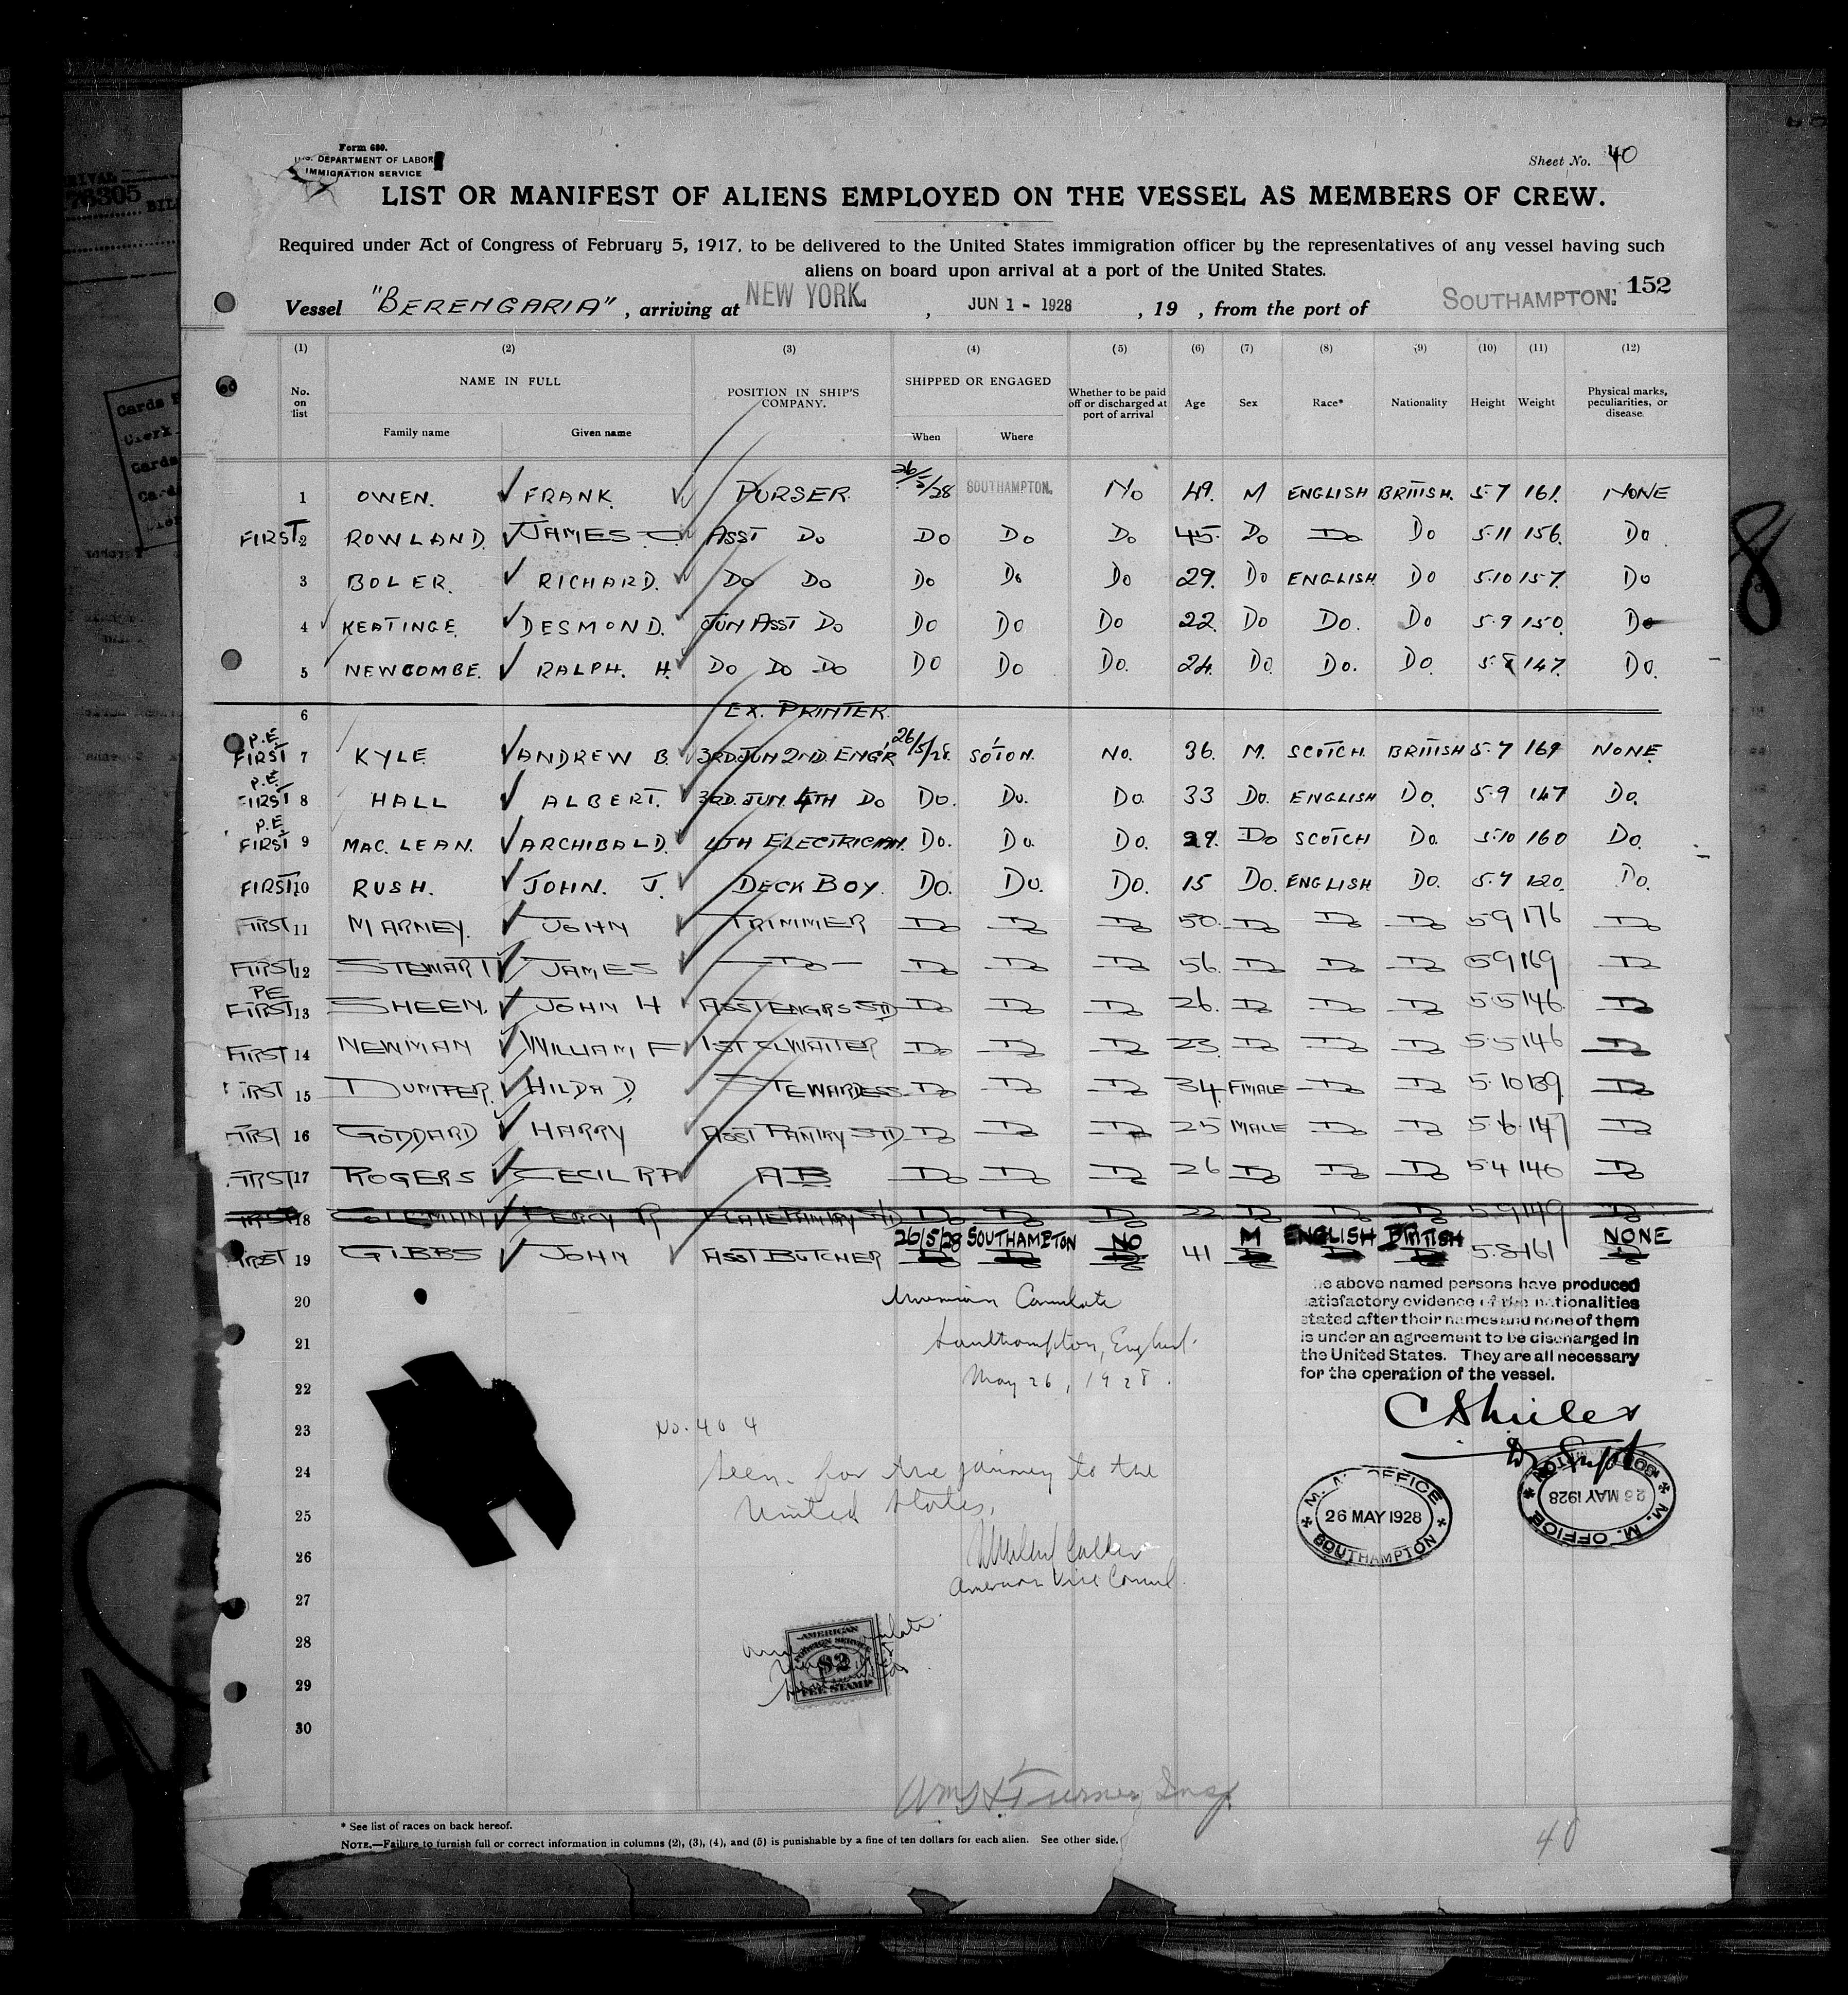 RIVAL
76305
BIL
Cards
Clerk
Cards
Card
Form 680.
U.S. DEPARTMENT OF LABOR
IMMIGRATION SERVICE
Sheet No. 40
LIST OR MANIFEST OF ALIENS EMPLOYED ON THE VESSEL AS MEMBERS OF CREW.
Required under Act of Congress of February 5, 1917, to be delivered to the United States immigration officer by the representatives of any vessel having such
aliens on board upon arrival at a port of the United States.
152
Vessel "BERENGARIA", arriving at NEW YORK, JUN 1 - 1928, 19 , from the port of SOUTHAMPTON.
(1) (2) (3) (4) (5) (6) (7) (8) (9) (10) (11) (12)
No. on list NAME IN FULL POSITION IN SHIP'S COMPANY. SHIPPED OR ENGAGED Whether to be paid off or discharged at port of arrival Age Sex Race* Nationality Height Weight Physical marks, peculiarities, or disease
Family name Given name When Where
1 OWEN. FRANK. PURSER. 26/5/28 SOUTHAMPTON. No 49. M ENGLISH BRITISH. 5.7 161. NONE
FIRST 2 ROWLAND. JAMES C. ASST Do Do Do Do 45. Do Do Do 5.11 156. Do
3 BOLER. RICHARD. Do Do Do Do Do 29. Do ENGLISH Do 5.10 157. Do
4 KEATINGE. DESMOND. JUN ASST Do Do Do Do 22. Do Do. Do 5.9 150. Do
5 NEWCOMBE. RALPH. H. Do Do Do Do Do Do. 24. Do Do. Do. 5.8 147. Do.
6 EX. PRINTER.
P.E. FIRST 7 KYLE ANDREW B. 3RD JUN 2ND ENG'R 26/5/28. SO'TON. No. 36. M. SCOTCH. BRITISH 5.7 169 NONE
P.E. FIRST 8 HALL ALBERT. 3RD. JUN. 4TH Do Do. Do. Do. 33 Do. ENGLISH Do. 5.9 147 Do.
P.E FIRST 9 MAC. LEAN. ARCHIBALD. 4TH ELECTRICIAN. Do. Do. Do. 29. Do SCOTCH Do. 5.10 160 Do.
FIRST 10 RUSH. JOHN. J. DECK BOY. Do. Do. Do. 15 Do. ENGLISH Do. 5.7 120. Do.
FIRST 11 MARNEY. JOHN TRIMMER Do Do Do 50. Do Do Do 5 9 176 Do
FIRST 12 STEWART JAMES Do Do Do Do 56. Do Do Do 5 9 169 Do
PE FIRST 13 SHEEN. JOHN H ASST ENGRS STD Do Do Do 26. Do Do Do 5 5 146 Do
FIRST 14 NEWMAN WILLIAM F 1ST CL WAITER Do Do Do 23. Do Do Do 5.5 146 Do
FIRST 15 DUMPER. HILDA D. STEWARDESS Do Do Do 34. FMALE Do Do 5.10 139. Do
FIRST 16 GODDARD HARRY ASST PANTRY STD Do Do Do 25 MALE Do Do 5.6 147 Do
FIRST 17 ROGERS CECIL R P AB Do Do Do 26 Do Do Do 5 4 140 Do
FIRST 18 COLEMAN PERCY R PLATE PANTRY STD Do Do Do 22 Do Do Do 5 9 149 Do
FIRST 19 GIBBS JOHN ASST BUTCHER 26/5/28 SOUTHAMPTON NO 41 M ENGLISH BRITISH 5.8 161 NONE
20
21
22
23
24
25
26
27
28
29
30
American Consulate
Southampton, England.
May 26, 1928.
No. 404
Seen for the journey to the
United States.
American Vice Consul.
he above named persons have produced
satisfactory evidence of the nationalities
stated after their names and none of them
is under an agreement to be discharged in
the United States. They are all necessary
for the operation of the vessel.
Supt
M. M. OFFICE
26 MAY 1928
SOUTHAMPTON
M. M. OFFICE
26 MAY 1928
SOUTHAMPTON
AMERICAN
FOREIGN SERVICE
$2
FEE STAMP
Wm H Turner Insp
* See list of races on back hereof.
NOTE.—Failure to furnish full or correct information in columns (2), (3), (4), and (5) is punishable by a fine of ten dollars for each alien. See other side.
40
8